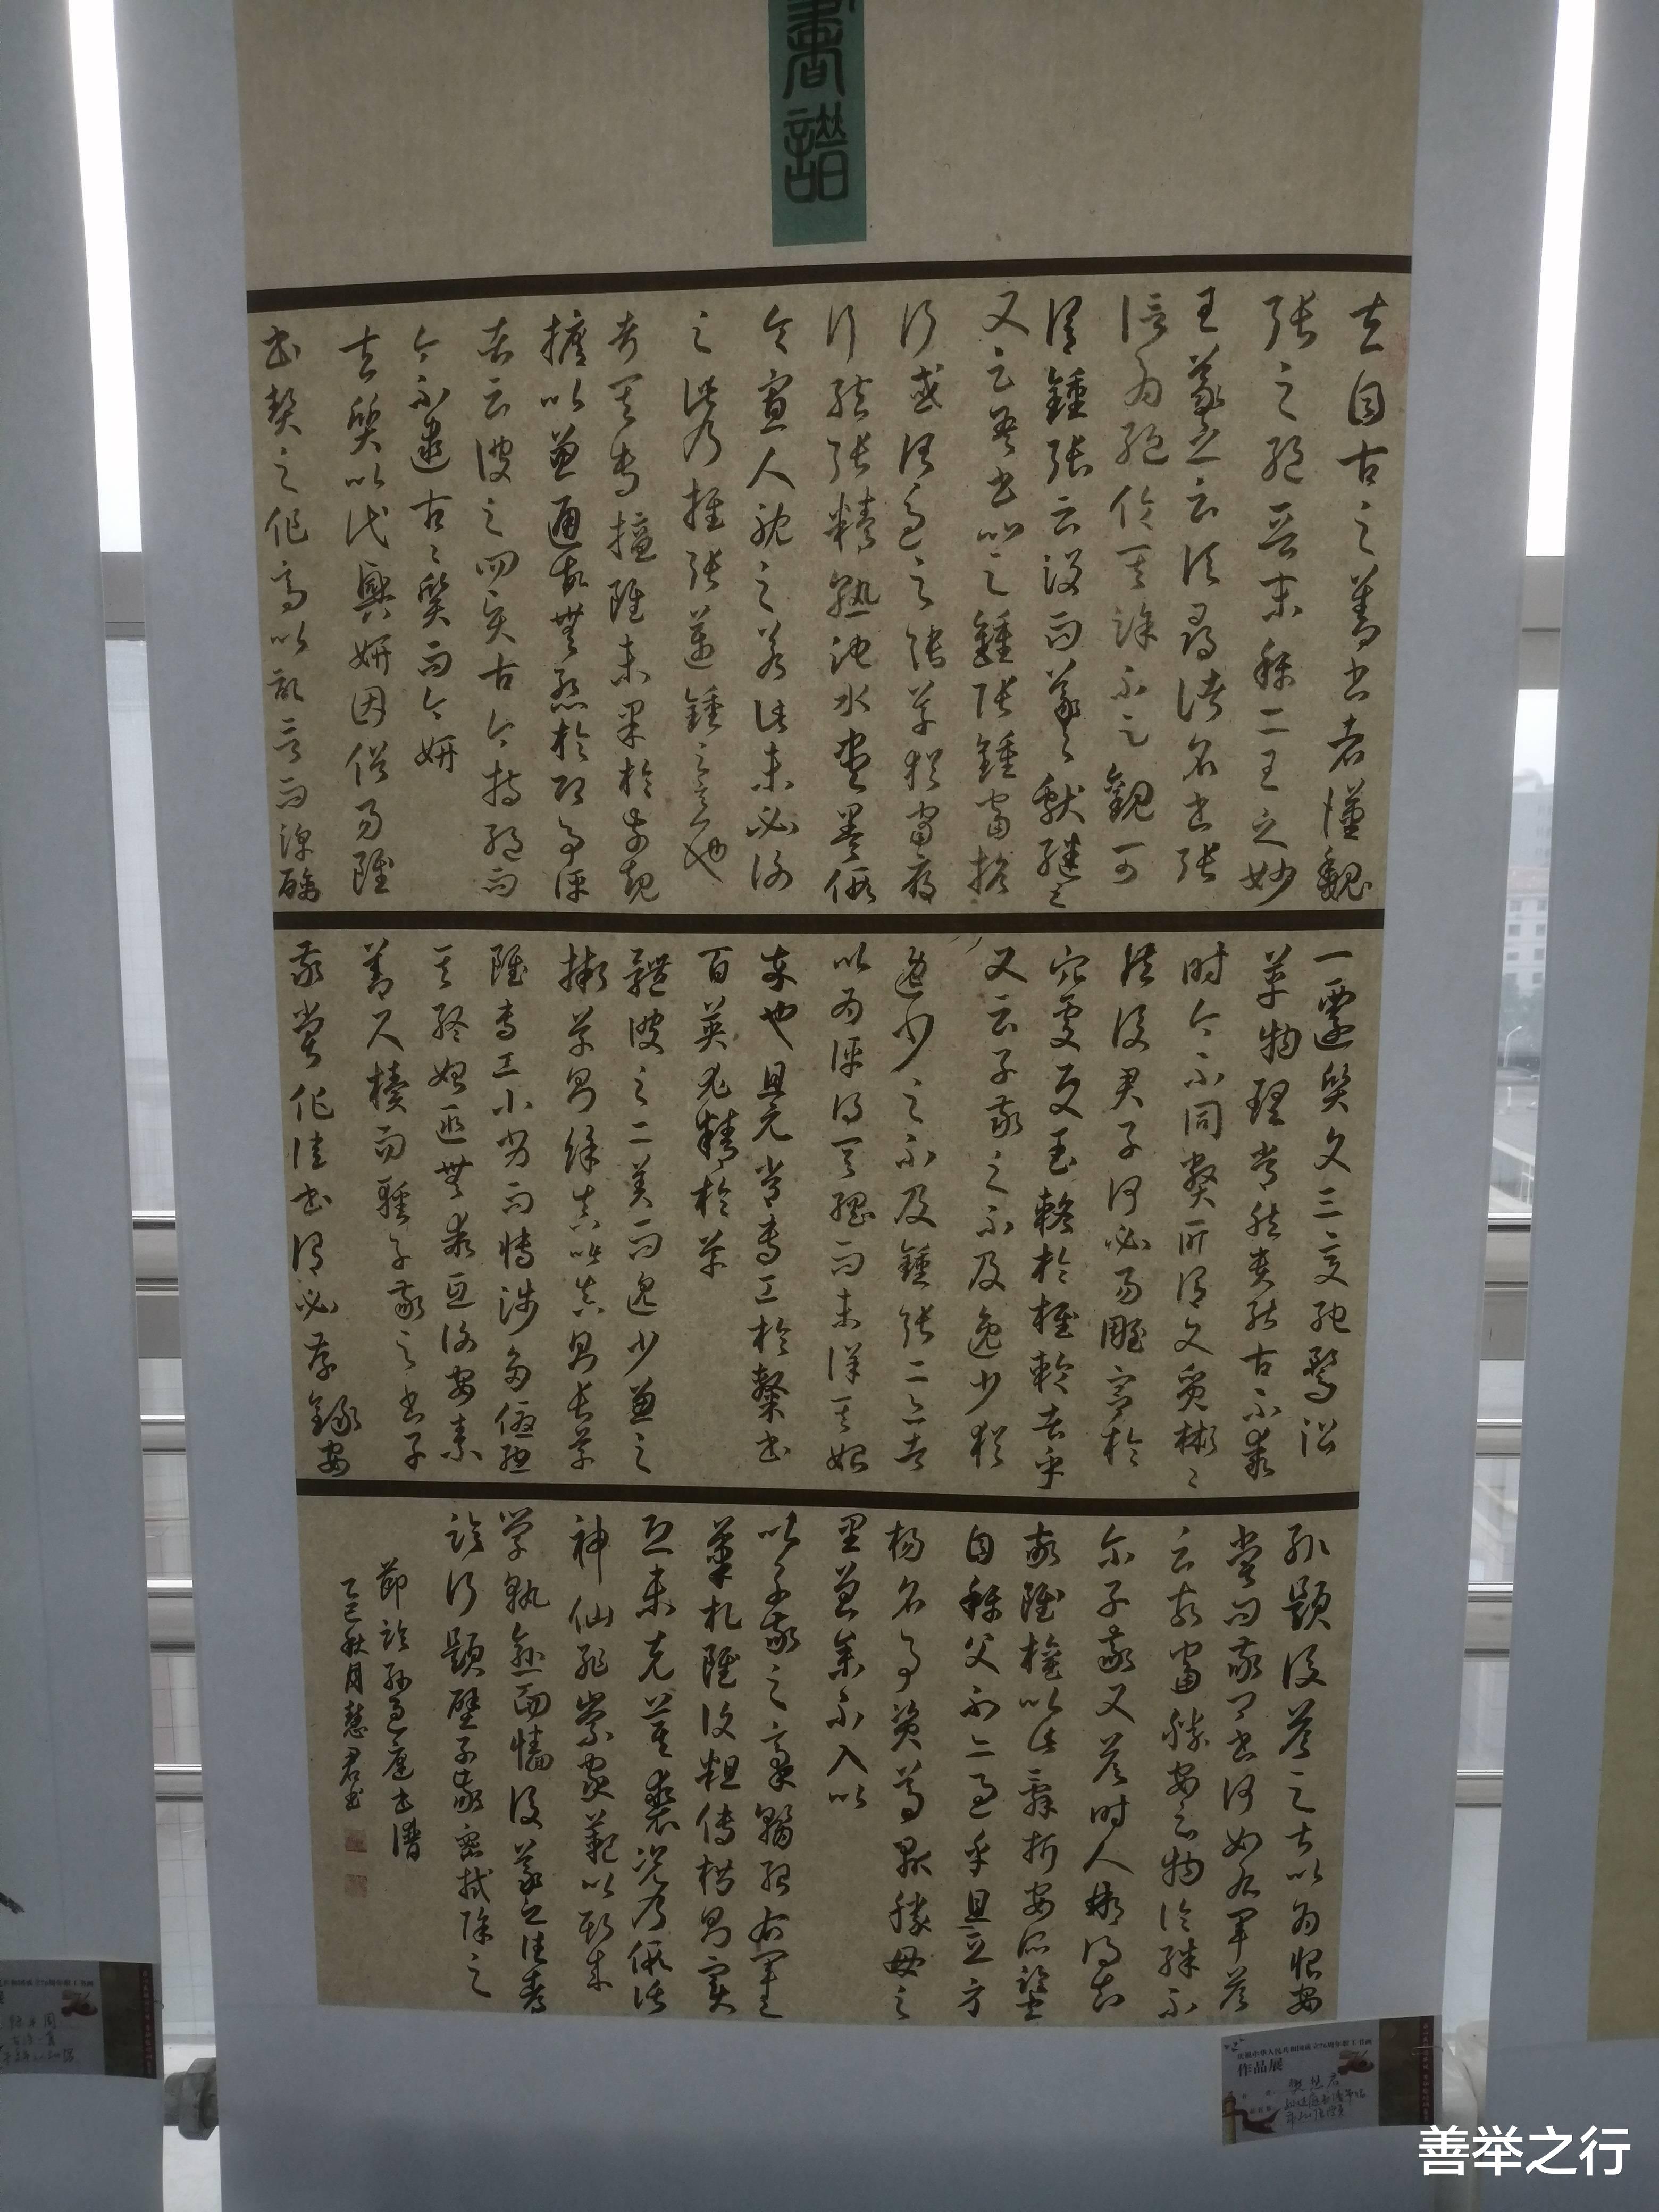 書譜
夫自古之善書者漢魏
張之絕晉末稱二王之妙
王羲之云頃尋諸名書張
信為絕倫其餘不足觀可
謂鍾張云沒而羲獻繼之
又云吾書比之鍾張鍾當抗
行或謂過之張草猶當雁
行然張精熟池水盡墨假
令寡人耽之若此未必謝
之此乃推張邁鍾之意也
考其專擅雖未果於前規
摭以兼通故無慙於即事評
者云彼之四賢古今特絕而
今不逮古古質而今妍
夫質以代興妍因俗易雖
書契之作適以記言而淳醨
一遷質文三變馳騖沿
革物理常然貴能古不乖
時今不同弊所謂文質彬彬
然後君子何必易雕宮於
穴處反玉輅於椎輪者乎
又云子敬之不及逸少猶
逸少之不及鍾張意者
以為評得其綱而未詳其始
卒也且元常專工於隸書
百英尤精於草
體彼之二美而逸少兼之
擬草則餘真比真則長草
雖專工小劣而博涉多優總
其終始匪無乖互謝安素
善尺牘而輕子敬之書子
敬嘗作佳書謂必存錄安
輒題後答之甚以為恨安
嘗問敬卿書何如右軍答
云故當勝安云物論殊不
爾子敬又答時人那得知
敬雖權以此辭折安所鑒
自稱父不亦過乎且立身
揚名事資尊顯勝母之
里曾參不入以
以子敬之豪翰紹右軍之
筆札雖復粗傳楷則實
恐未克箕裘況乃假託
神仙恥崇家範以斯成
學孰愈面牆後羲之往都
臨行題壁子敬密拭除之
節臨孫過庭書譜
乙巳秋月慧君書
庆祝中华人民共和国成立76周年职工书画
作品展
善举之行